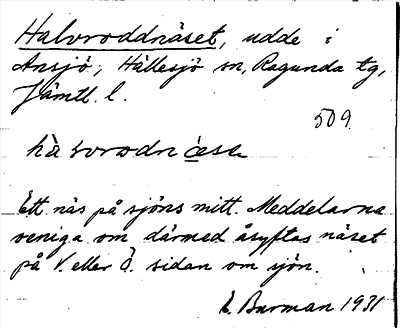 Halvroddnäset, udde i
Ansjö, Hällesjö sn, Ragunda tg,
Jämtl. l.
509
Ett näs på sjöns mitt. Meddelarna
veniga om därmed åsyftas näset
på V. eller Ö. sidan om sjön.
E. Burman 1931